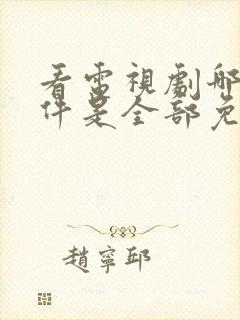 看電視劇哪
件是全部免
趙寧邱